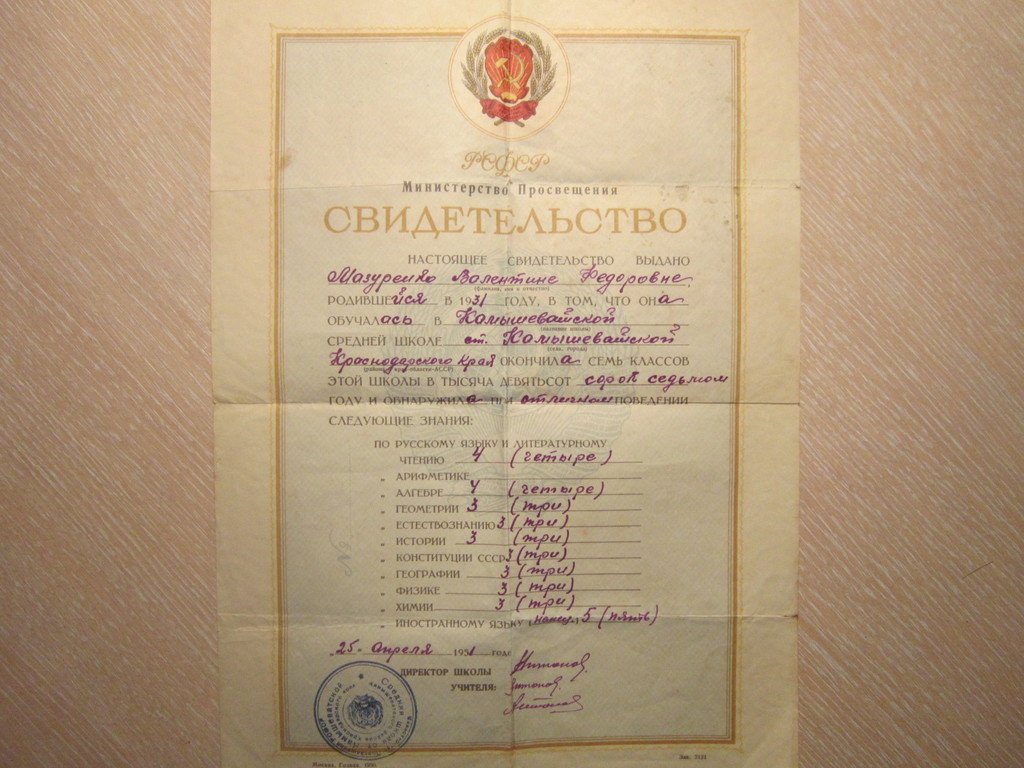 РСФСР
Министерство Просвещения
СВИДЕТЕЛЬСТВО
НАСТОЯЩЕЕ СВИДЕТЕЛЬСТВО ВЫДАНО
Мазуренко Валентине Федоровне
(фамилия, имя и отчество)
РОДИВШЕЙСЯ В 1931 ГОДУ, В ТОМ, ЧТО ОНА
ОБУЧАЛАСЬ В Камышевайской
(название школы)
СРЕДНЕЙ ШКОЛЕ ст. Камышевайской
(села, города)
Краснодарского Края ОКОНЧИЛА СЕМЬ КЛАССОВ
ЭТОЙ ШКОЛЫ В ТЫСЯЧА ДЕВЯТЬСОТ сорок седьмом
ГОДУ И ОБНАРУЖИЛА ПРИ отличном ПОВЕДЕНИИ
СЛЕДУЮЩИЕ ЗНАНИЯ:
ПО РУССКОМУ ЯЗЫКУ И ЛИТЕРАТУРНОМУ
ЧТЕНИЮ 4 (четыре)
„ АРИФМЕТИКЕ
„ АЛГЕБРЕ 4 (четыре)
„ ГЕОМЕТРИИ 3 (три)
„ ЕСТЕСТВОЗНАНИЮ 3 (три)
„ ИСТОРИИ 3 (три)
„ КОНСТИТУЦИИ СССР 3 (три)
„ ГЕОГРАФИИ 3 (три)
„ ФИЗИКЕ 3 (три)
„ ХИМИИ 3 (три)
„ ИНОСТРАННОМУ ЯЗЫКУ (немец.) 5 (пять)
25. апреля 1951 ГОДА
ДИРЕКТОР ШКОЛЫ
УЧИТЕЛЯ:
Москва, Гознак, 1950
Зак. 2124